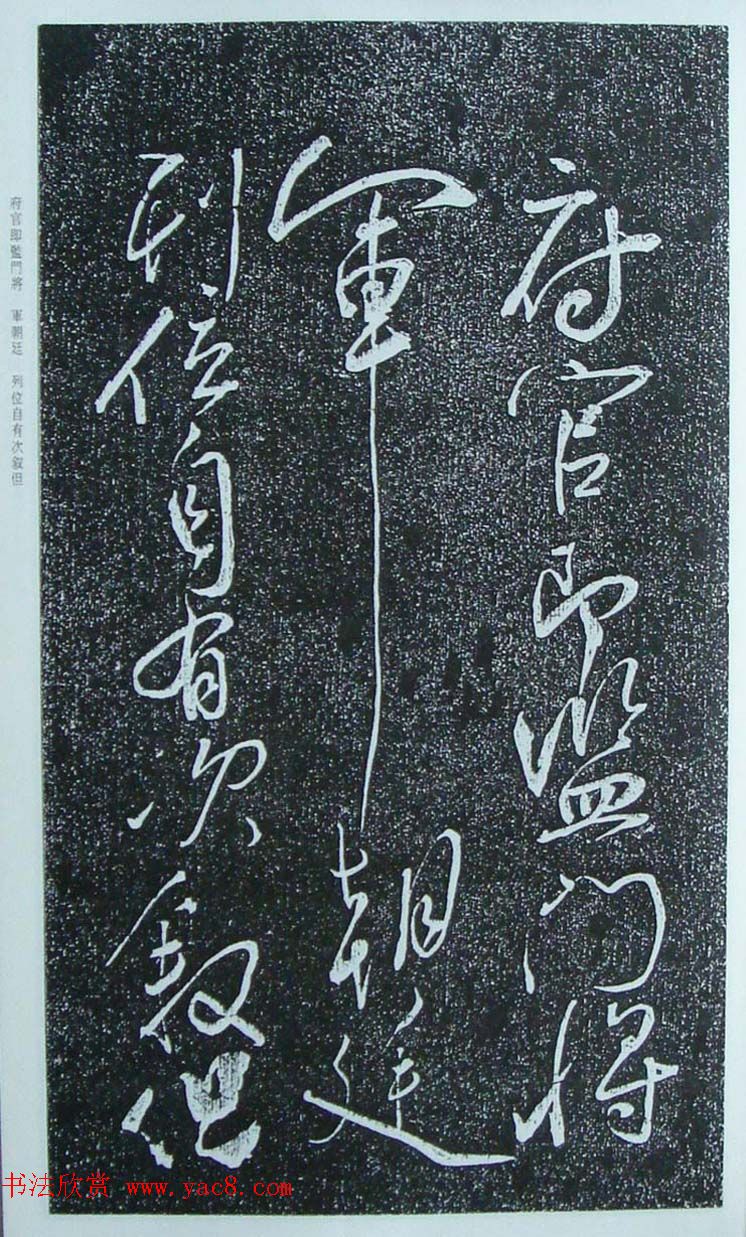 府官即監門將
軍朝廷
列位自有次叙但
府官即監門將 軍朝廷 列位自有次叙但
书法欣赏 www.yac8.com